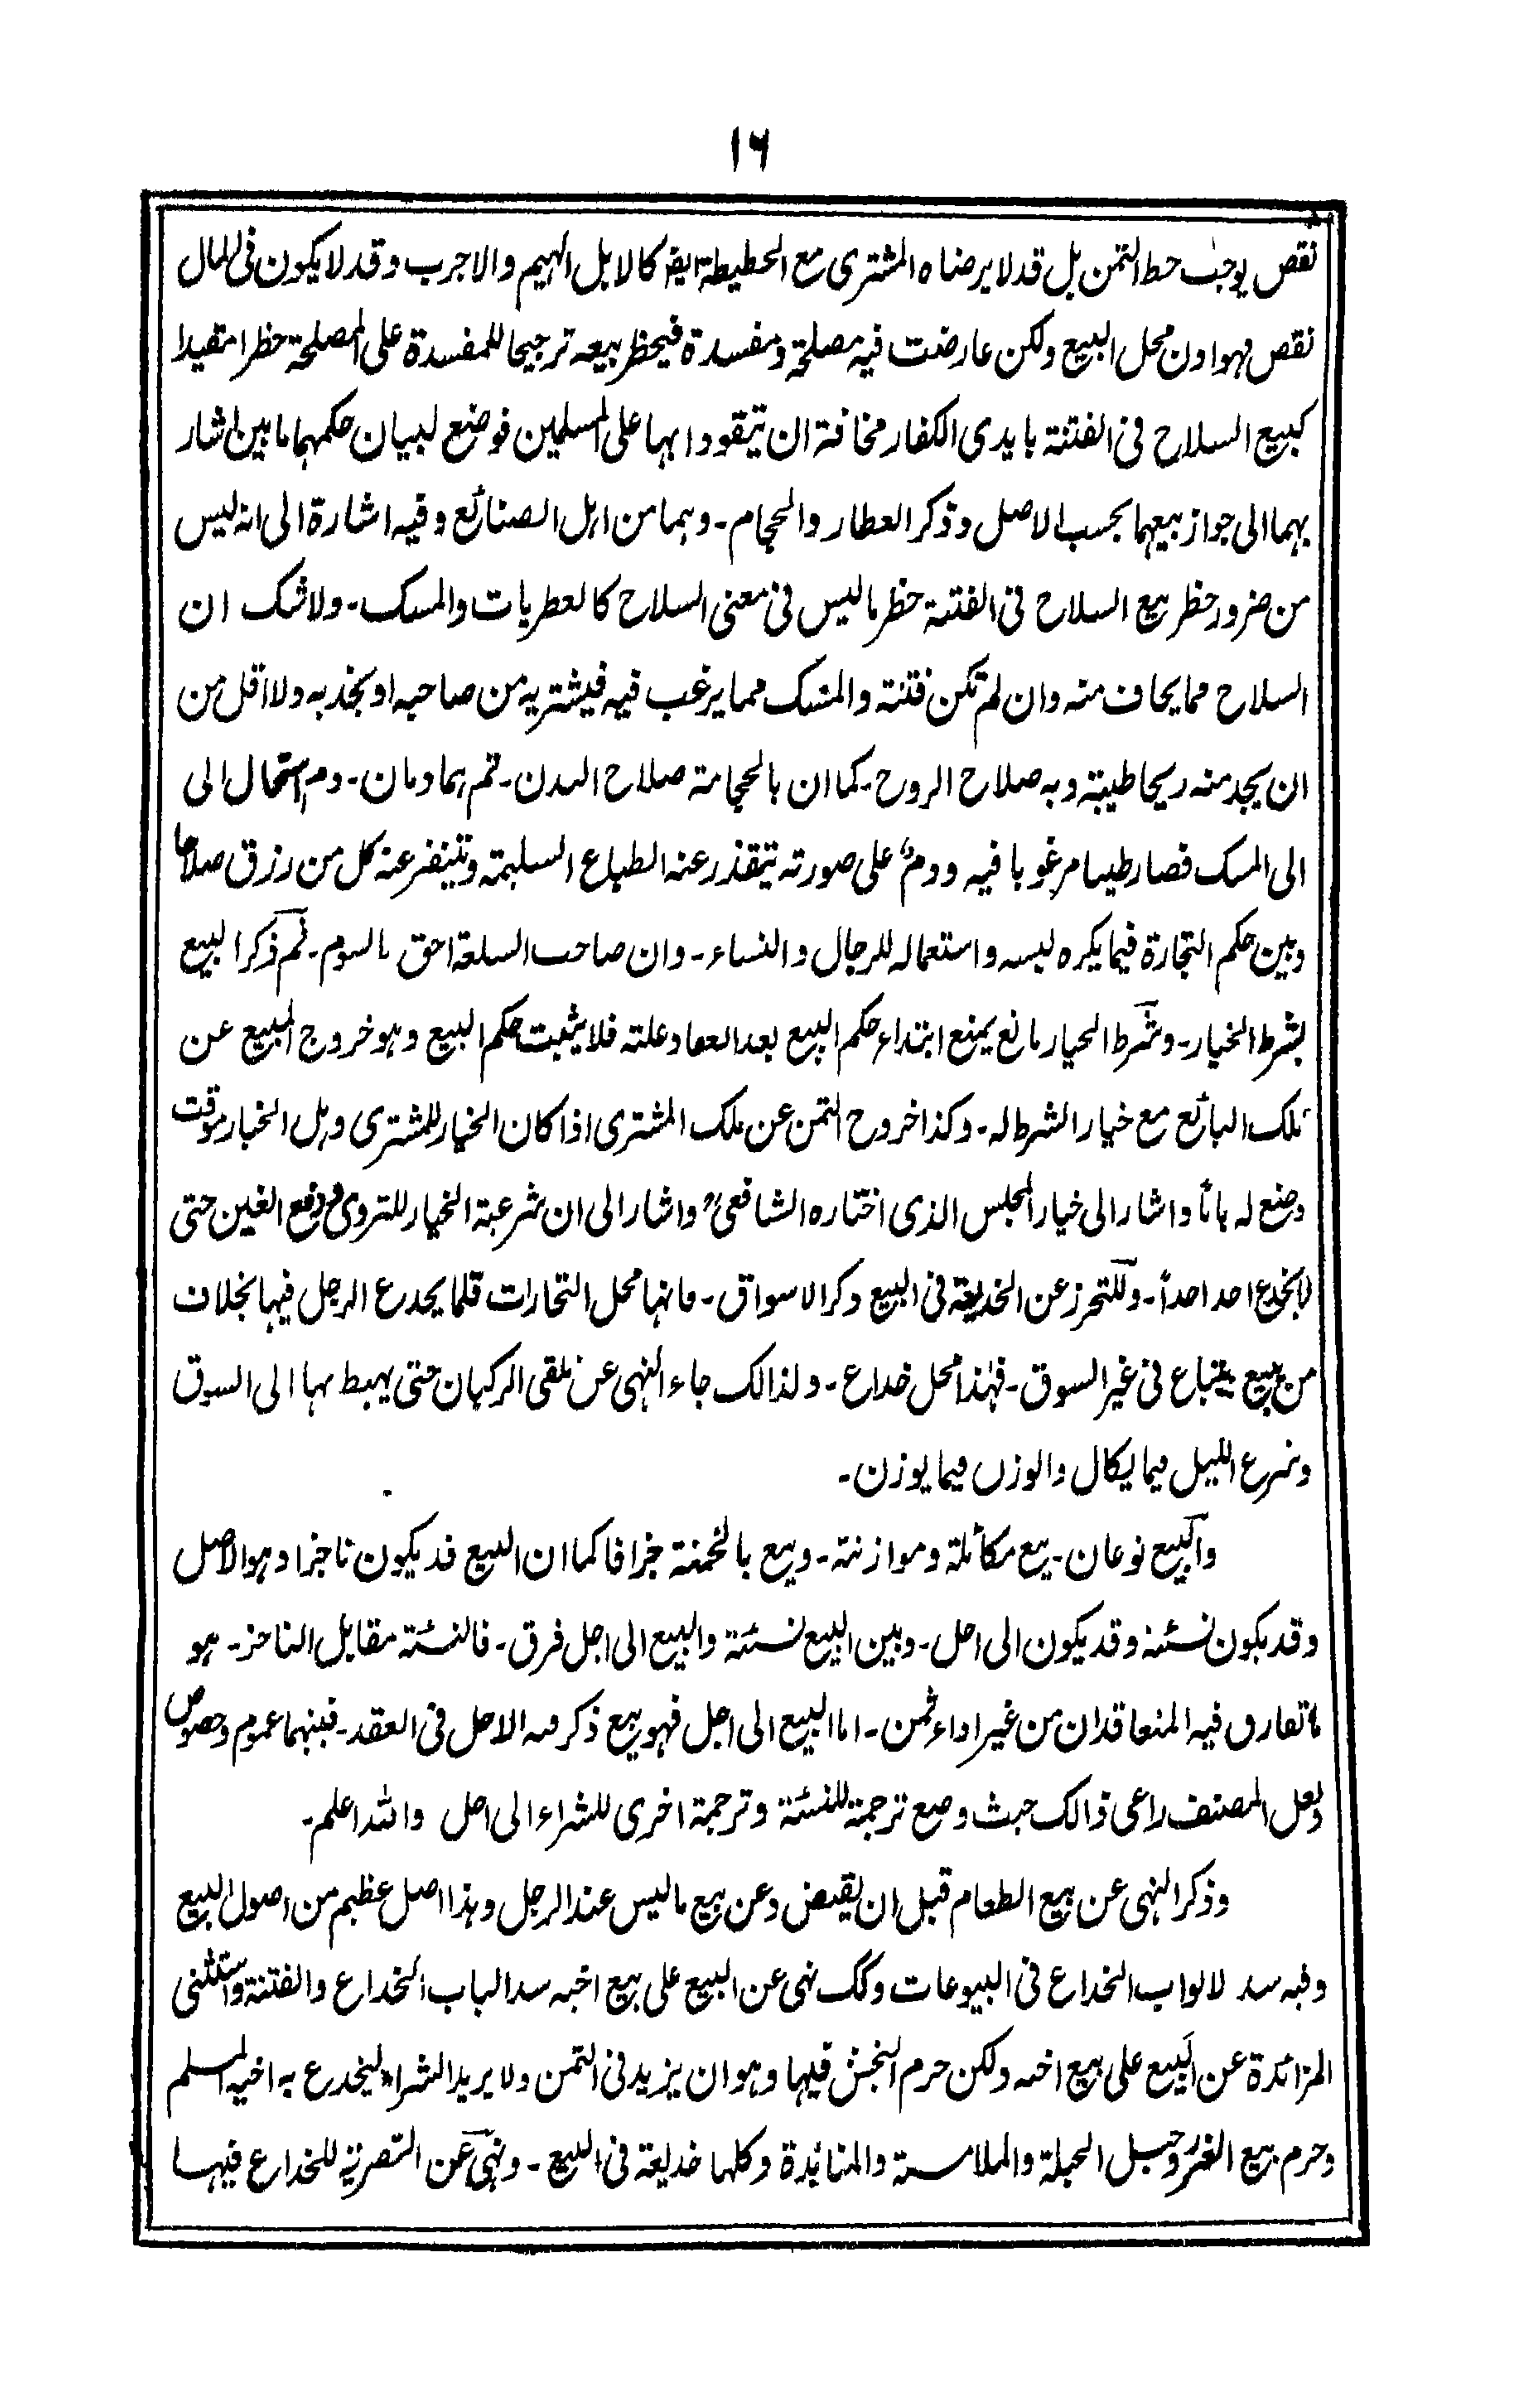 ١٦
نقص يوجب حط الثمن بل قد لا يرضاه المشترى مع الحطيطة ايضا كالابل الهيم والاجرب وقد لا يكون فى المال
نقص فهوا دن محل البيع ولكن عارضت فيه مصلحة ومفسدة فيحظر بيعه ترجيحا للمفسدة على المصلحة حظرا مقيدا
كبيع السلاح فى الفتنة بايدى الكفار مخافة ان يتقووا بها على المسلمين فوضع لبيان حكمهما بابين اشار
بهما الى جواز بيعهما بحسب الاصل وذكر العطار والحجام - وهما من اهل الصنائع وفيه اشارة الى انه ليس
من ضرور حظر بيع السلاح فى الفتنة حظر ما ليس فى معنى السلاح كالعطريات والمسك - ولا شك ان
السلاح مما يخاف منه وان لم تكن فتنة والمسك مما يرغب فيه فيشتريه من صاحبه او يحذ به ولا اقل من
ان يجد منه ريحا طيبة وبه صلاح الروح - كما ان بالحجامة صلاح البدن - ثم هما دمان - دم استحال الى
الى المسك فصار طيبا مرغوبا فيه ودم على صورته تتقذر عنه الطباع السليمة وتتنفر عنه كل من رزق صلاحا
وبين حكم التجارة فيما يكره لبسه واستعماله للرجال والنساء - وان صاحب السلعة احق بالسوم - ثم ذكر البيع
بشرط الخيار - وشرط الخيار مانع يمنع ابتداء حكم البيع بعد انعقاد علته فلا يثبت حكم البيع وهو خروج المبيع عن
ملك البائع مع خيار الشرط له - وكذا خروج الثمن عن ملك المشترى اذا كان الخيار للمشترى وهل الخيار موقت
وضع له بابا واشار الى خيار المجلس الذى اختاره الشافعى واشار الى ان شرعية الخيار للتروى ودفع الغبن حتى
لا يخدع احد احدا - وللتحرز عن الخديعة فى البيع ذكر الاسواق - فانها محل التجارات قلما يخدع الرجل فيها بخلاف
من بيع يبتاع فى غير السوق - فهذا محل خداع - ولذالك جاء النهى عن تلقى الركبان حتى يهبط بها الى السوق
وشرع الكيل فيما يكال والوزن فيما يوزن -
والبيع نوعان - بيع مكائلة وموازنة - وبيع بالخمنة جزافا كما ان البيع قد يكون ناجزا وهو الاصل
وقد يكون نسئة وقد يكون الى اجل - وبين البيع نسئة والبيع الى اجل فرق - فالنسئة مقابل الناجز - هو
ما تفارق فيه المتعاقدان من غير اداء ثمن - اما البيع الى اجل فهو بيع ذكر فيه الاجل فى العقد - فبينهما عموم وخصوص
ولعل المصنف راعى ذالك حيث وضع ترجمة للنسئة وترجمة اخرى للشراء الى اجل والله اعلم -
وذكر النهى عن بيع الطعام قبل ان يقبض وعن بيع ما ليس عند الرجل وهذا اصل عظيم من اصول البيع
وفيه سد لابواب الخداع فى البيوعات وكك نهى عن البيع على بيع اخيه سدا لباب الخداع والفتنة واستثنى
المزائدة عن البيع على بيع اخيه ولكن حرم النجش فيها وهو ان يزيد فى الثمن ولا يريد الشراء ليخدع به اخيه المسلم
وحرم بيع الغرر وحبل الحبلة والملامسة والمنابذة وكلها خديعة فى البيع - ونهى عن التصرية للخداع فيها